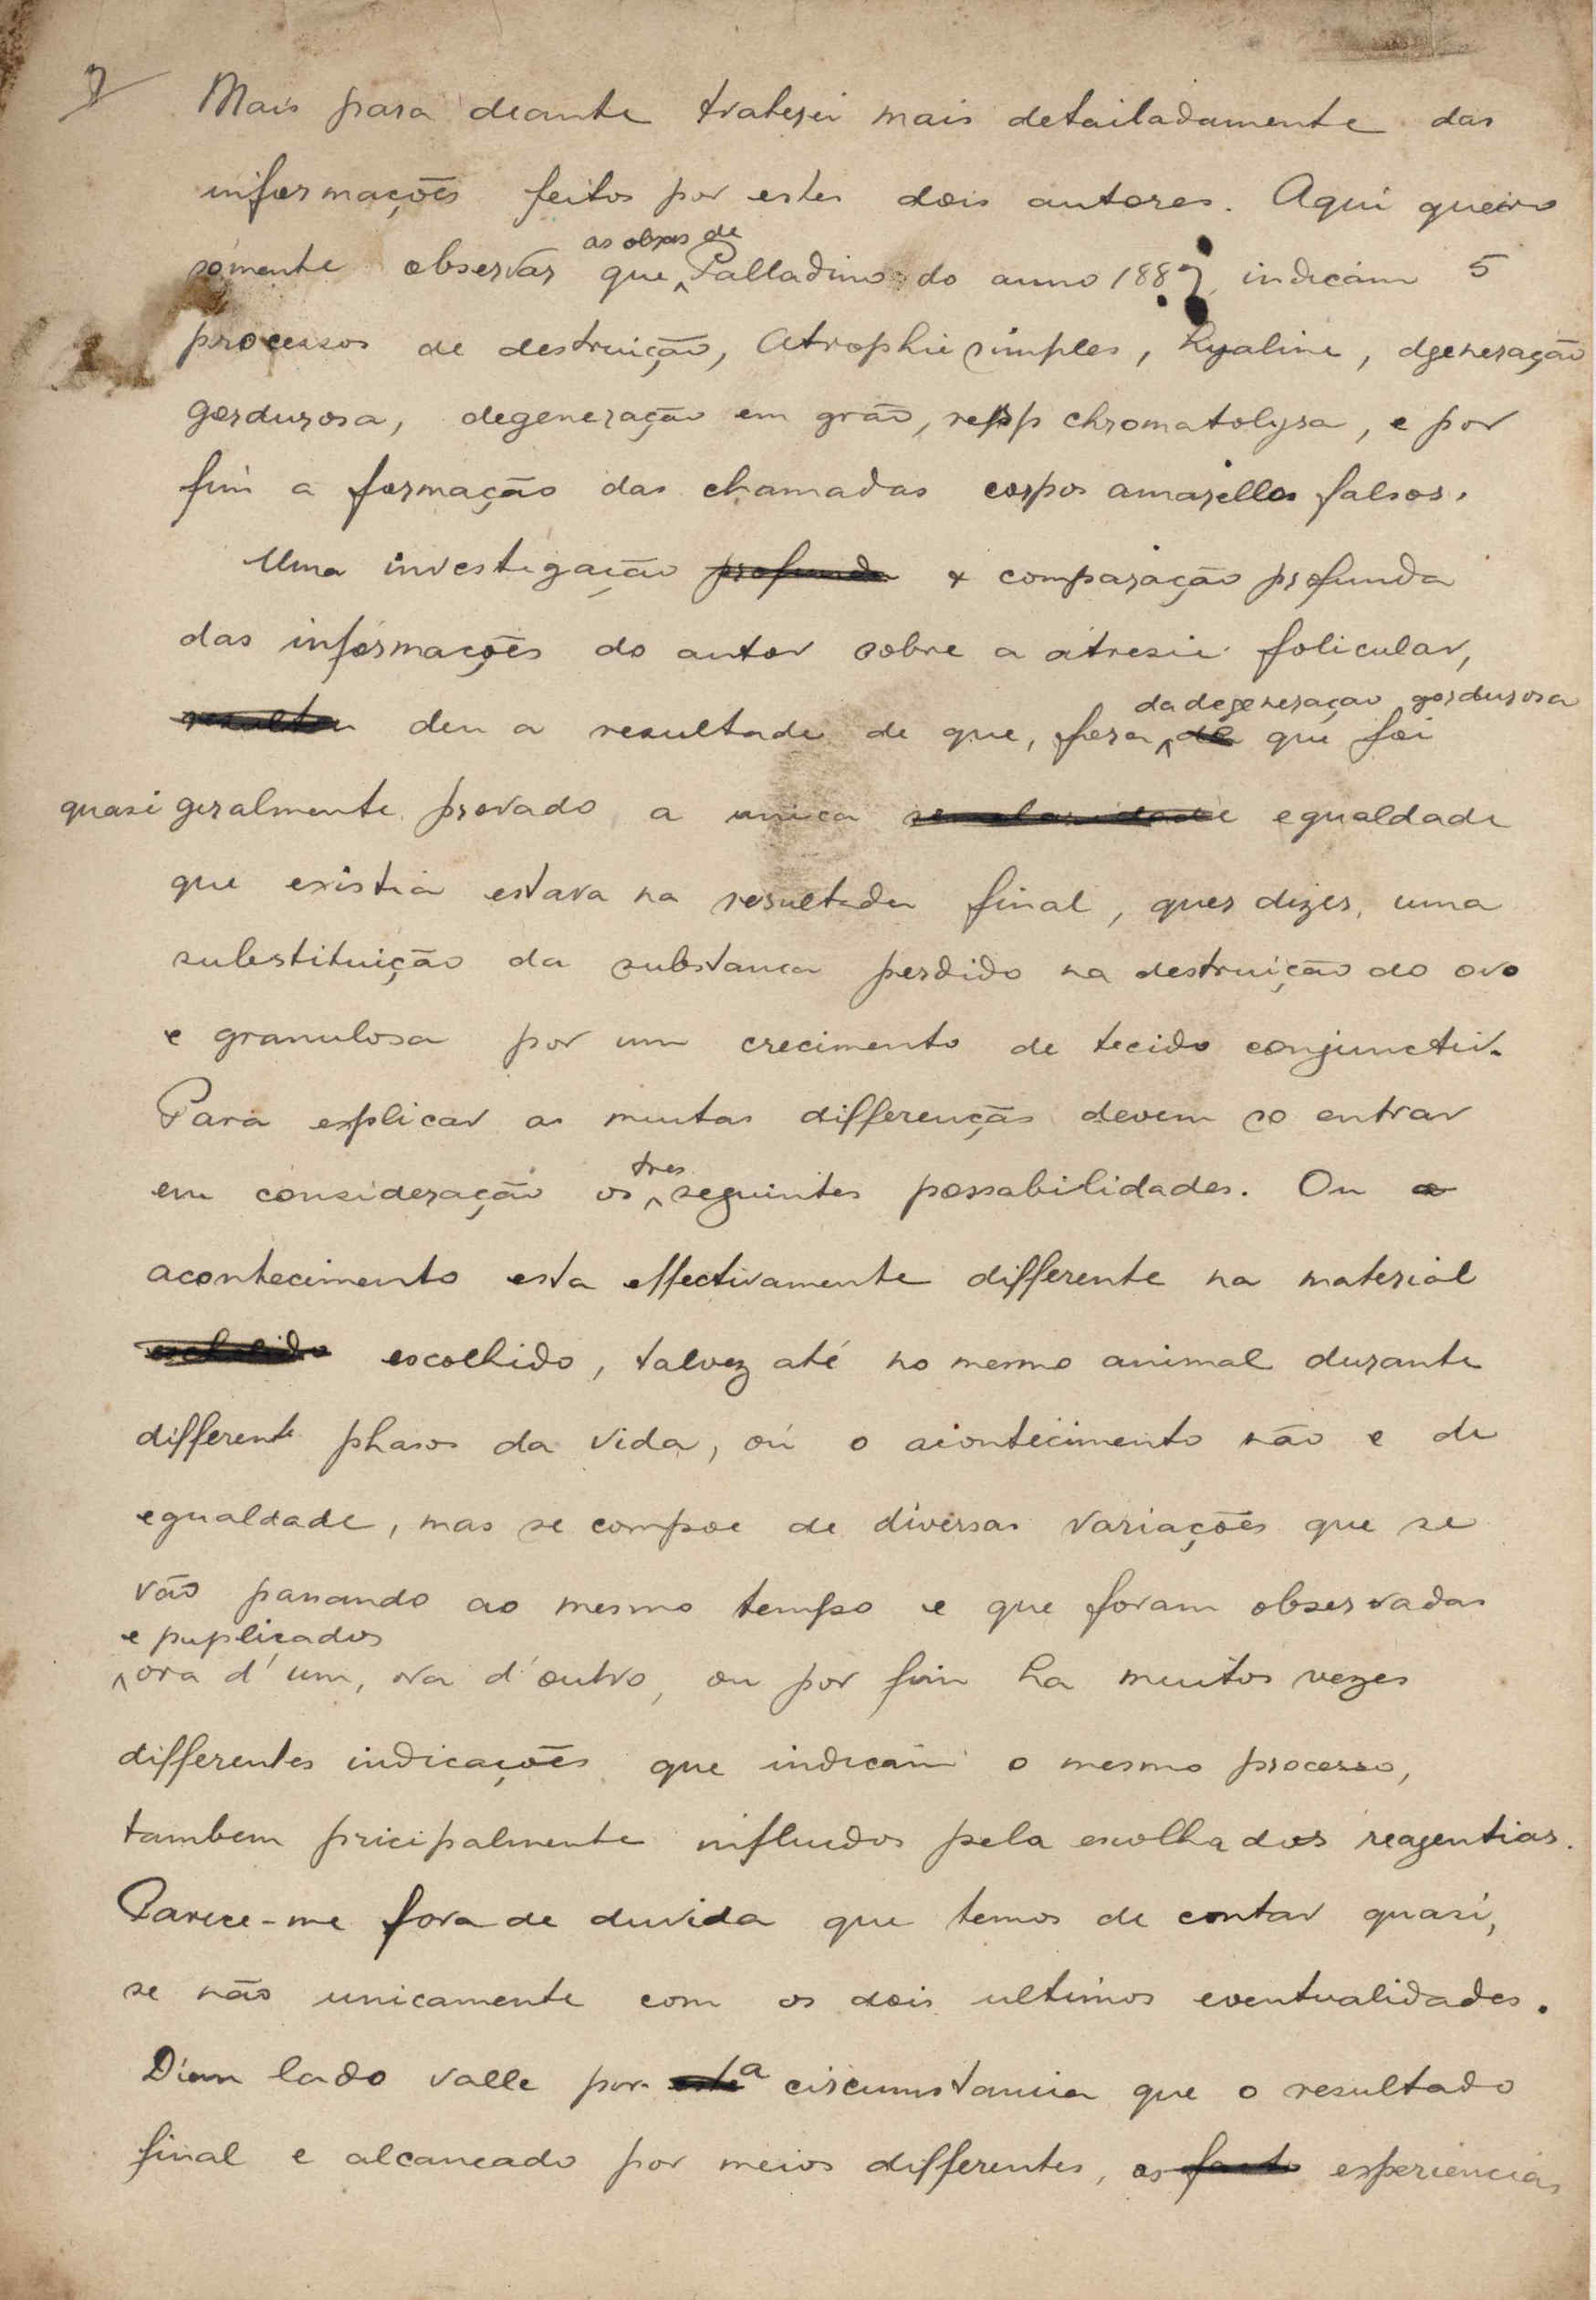 7
Mais para deante traterei mais detailadamente das
informações feitos por estes dois autores. Aqui queiro
as obras de
sómente observar que Palladino do anno 1887, indicam 5
processos de destruição, Atrophie simples, hyaline, dgeneração
gordurosa, degeneração em grão, resp chromatolysa, e por
fim a formação das chamadas corpos amarellos falsos.
Uma investigação profunda & comparação profunda
das informações do autor sobre a atresie folicular,
da degeneração gordurosa
resulton deu a resultado de que, fora de que foi
quasi geralmente provado a unica semelaridade egualdade
que existia estava na resultado final, quer dizer, uma
substituição da substanca perdido na destruição do ovo
e granulosa por um crecimento de tecido conjunctiv.
Para explicar as muitas differenças devem so entrar
tres
em consideração os seguintes possabilidades. Ou o
acontecimento esta effectivamente differente na material
escholido escolhido, talvez até no mesmo animal durante
different phasos da vida, ou o acontecimento não e de
egualdade, mas se compoe de diversas variações que se
vão passando ao mesmo tempo e que foram observadas
e puplicados
ora d'um, ora d'outro, ou por fim ha muitos vezes
differentes indicações que indicam o mesmo processo,
tambem pricipalmente influidos pela escolha dos reagentias.
Parece-me fora de duvida que temos de contar quasi,
se não unicamente com os dois ultimos eventualidades.
a
D'um lado valle por este circumstancia que o resultado
final e alcancado por meios differentes, as facto experiencias